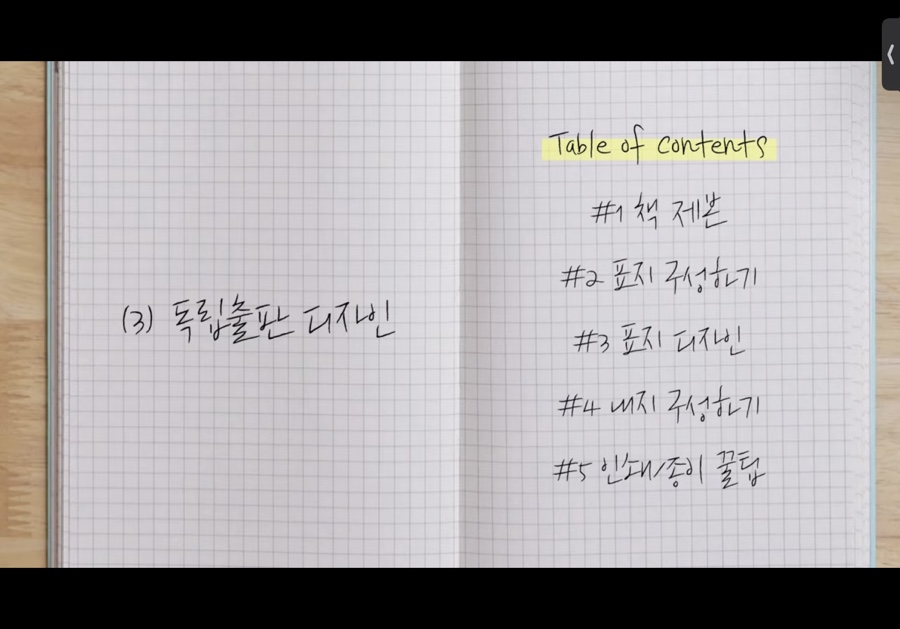 (3) 독립출판 디자인
Table of contents
#1 책 제본
#2 표지 구성하기
#3 표지 디자인
#4 내지 구성하기
#5 인쇄/종이 꿀팁